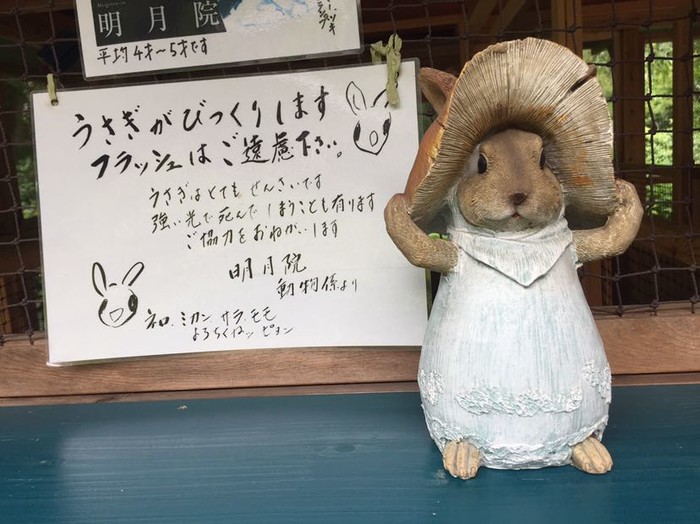 明月院
平均4才〜5才です
うさぎがびっくりします
フラッシュはご遠慮下さい。
うさぎはとてもせんさいです
強い光で死んでしまうことも有ります
ご協力をおねがいします
明月院
動物係より
ミカン サラ モモ
よろちくねッ ピョン